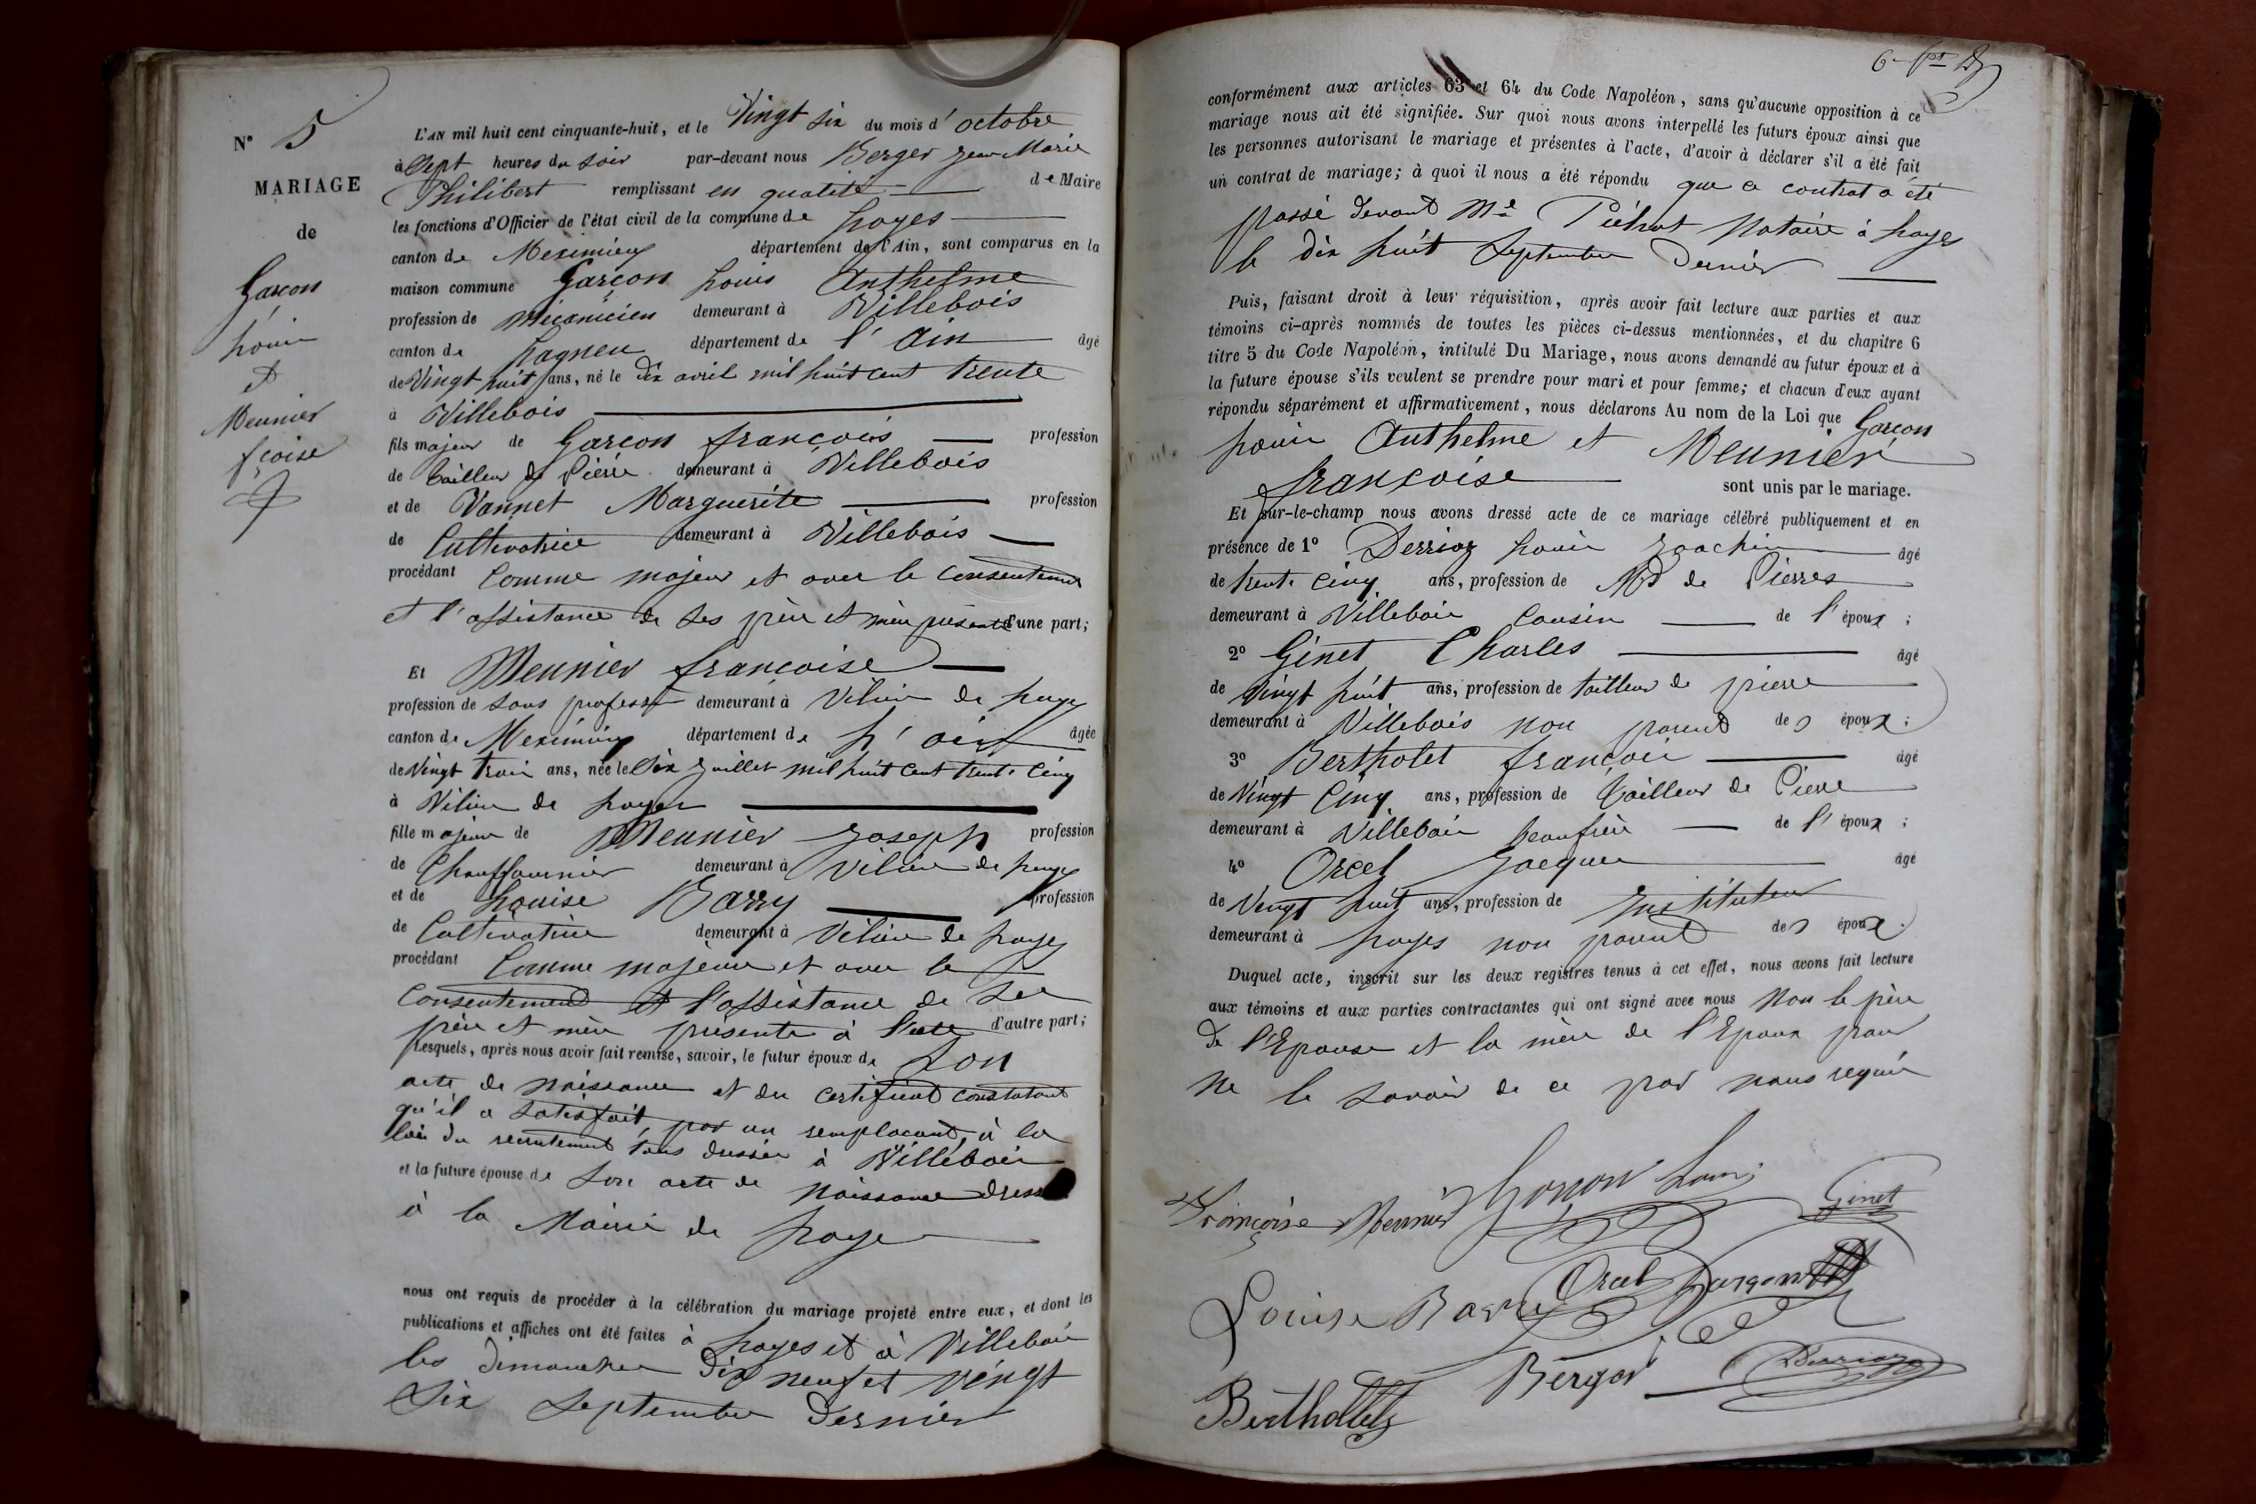 N° 5
MARIAGE
de
Garçon
Louis
et
Meunier
fçoise
L'AN mil huit cent cinquante-huit, et le Vingt six du mois d'octobre
à Sept heures du soir par-devant nous Berger Jean Marie
Philibert remplissant en qualité de Maire
les fonctions d'Officier de l'état civil de la commune de Loyes
canton de Meximieux département de l'Ain, sont comparus en la
maison commune Garçon Louis Anthelme
profession de Mécanicien demeurant à Villebois
canton de Lagneu département de l'Ain âgé
de Vingt huit ans, né le dix avril mil huit cent trente
à Villebois
fils majeur de Garçon françois profession
de tailleur de Pierre demeurant à Villebois
et de Vannet Marguerite profession
de Cultivatrice demeurant à Villebois
procédant Comme majeur et avec le consentement
et l'assistance de ses père et mère présents d'une part;
Et Meunier françoise
profession de sans profession demeurant à Vilieu de Loyes
canton de Meximieux département de L'ain âgée
de Vingt trois ans, née le Six Juillet mil huit cent trente cinq
à Vilieu de Loyes
fille majeure de Meunier Joseph profession
de Chauffournier demeurant à Vilieu de Loyes
et de Louise Barry profession
de Cultivatrice demeurant à Vilieu de Loyes
procédant Comme majeure et avec le
consentement et l'assistance de ses
père et mère présents à l'acte d'autre part;
Lesquels, après nous avoir fait remise, savoir, le futur époux de Son
acte de naissance et du certificat constatant
qu'il a satisfait, par un remplaçant, à la
loi du recrutement tous dressés à Villebois
et la future épouse de Son acte de naissance dressé
à la Mairie de Loyes
nous ont requis de procéder à la célébration du mariage projeté entre eux, et dont les
publications et affiches ont été faites à Loyes et à Villebois
les dimanches dix neuf et vingt
Six Septembre dernier
conformément aux articles 63 et 64 du Code Napoléon, sans qu'aucune opposition à ce
mariage nous ait été signifiée. Sur quoi nous avons interpellé les futurs époux ainsi que
les personnes autorisant le mariage et présentes à l'acte, d'avoir à déclarer s'il a été fait
un contrat de mariage; à quoi il nous a été répondu que ce contrat a été
passé devant Me Notaire à Loyes
le dix huit Septembre Dernier
Puis, faisant droit à leur réquisition, après avoir fait lecture aux parties et aux
témoins ci-après nommés de toutes les pièces ci-dessus mentionnées, et du chapitre 6
titre 5 du Code Napoléon, intitulé Du Mariage, nous avons demandé au futur époux et à
la future épouse s'ils veulent se prendre pour mari et pour femme; et chacun d'eux ayant
répondu séparément et affirmativement, nous déclarons Au nom de la Loi que Garçon
Louis Anthelme et Meunier
françoise sont unis par le mariage.
Et sur-le-champ nous avons dressé acte de ce mariage célébré publiquement et en
présence de 1° Derrioz Louis Joachim âgé
de trente cinq ans, profession de Md de Pierres
demeurant à Villebois Cousin de l'époux;
2° Ginet Charles âgé
de Vingt huit ans, profession de tailleur de pierre
demeurant à Villebois non parent des époux;
3° Bertholet françois âgé
de Vingt Cinq ans, profession de tailleur de Pierre
demeurant à Villebois beaufrère de l'époux;
4° Orcel Jacques âgé
de Vingt huit ans, profession de Instituteur
demeurant à Loyes non parent des époux.
Duquel acte, inscrit sur les deux registres tenus à cet effet, nous avons fait lecture
aux témoins et aux parties contractantes qui ont signé avec nous Non le père
de l'Epouse et la mère de l'Epoux pour
ne le savoir de ce par nous requis
Françoise Meunier Garçon Louis Ginet
Louise Barry Orcel Garçon
Berthollet Berger Derrioz